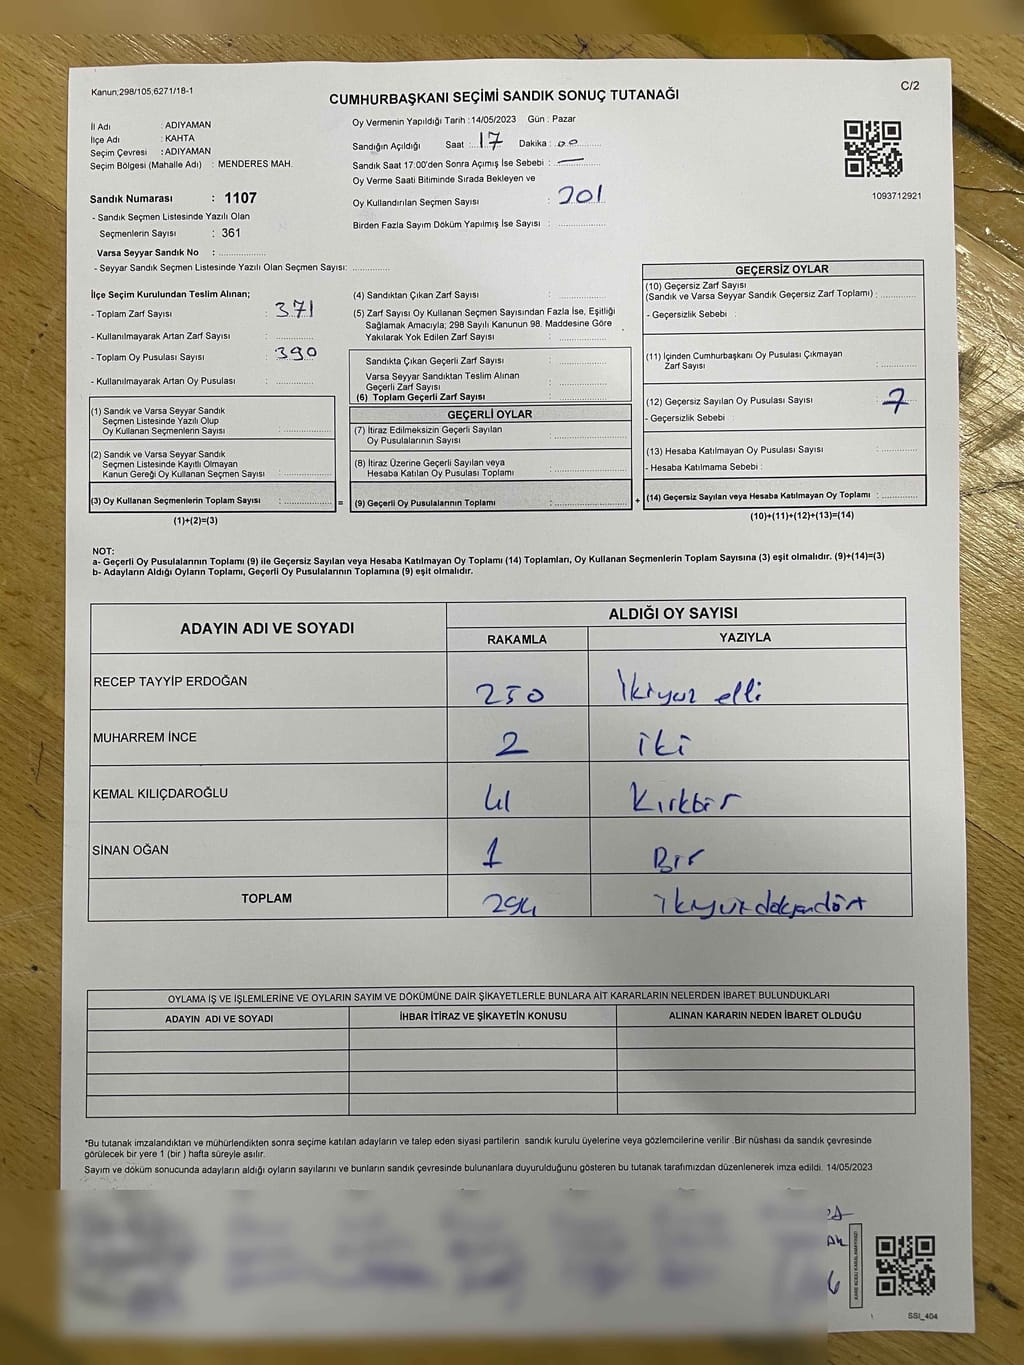 Kanun;298/105;6271/18-1
C/2
CUMHURBAŞKANI SEÇİMİ SANDIK SONUÇ TUTANAĞI
İl Adı : ADIYAMAN
İlçe Adı : KAHTA
Seçim Çevresi : ADIYAMAN
Seçim Bölgesi (Mahalle Adı) : MENDERES MAH.
Sandık Numarası : 1107
- Sandık Seçmen Listesinde Yazılı Olan
Seçmenlerin Sayısı : 361
Varsa Seyyar Sandık No :
- Seyyar Sandık Seçmen Listesinde Yazılı Olan Seçmen Sayısı:
Oy Vermenin Yapıldığı Tarih :14/05/2023 Gün : Pazar
Sandığın Açıldığı Saat : 17 Dakika : 00
Sandık Saat 17:00'den Sonra Açımış İse Sebebi : —
Oy Verme Saati Bitiminde Sırada Bekleyen ve
Oy Kullandırılan Seçmen Sayısı : 301
Birden Fazla Sayım Döküm Yapılmış İse Sayısı :
1093712921
İlçe Seçim Kurulundan Teslim Alınan;
- Toplam Zarf Sayısı : 371
- Kullanılmayarak Artan Zarf Sayısı :
- Toplam Oy Pusulası Sayısı : 390
- Kullanılmayarak Artan Oy Pusulası :
(1) Sandık ve Varsa Seyyar Sandık
Seçmen Listesinde Yazılı Olup
Oy Kullanan Seçmenlerin Sayısı :
(2) Sandık ve Varsa Seyyar Sandık
Seçmen Listesinde Kayıtlı Olmayan
Kanun Gereği Oy Kullanan Seçmen Sayısı :
(3) Oy Kullanan Seçmenlerin Toplam Sayısı :
=
(1)+(2)=(3)
(4) Sandıktan Çıkan Zarf Sayısı :
(5) Zarf Sayısı Oy Kullanan Seçmen Sayısından Fazla İse, Eşitliği
Sağlamak Amacıyla; 298 Sayılı Kanunun 98. Maddesine Göre
Yakılarak Yok Edilen Zarf Sayısı :
Sandıkta Çıkan Geçerli Zarf Sayısı :
Varsa Seyyar Sandıktan Teslim Alınan
Geçerli Zarf Sayısı :
(6) Toplam Geçerli Zarf Sayısı :
GEÇERLİ OYLAR
(7) İtiraz Edilmeksizin Geçerli Sayılan
Oy Pusulalarının Sayısı :
(8) İtiraz Üzerine Geçerli Sayılan veya
Hesaba Katılan Oy Pusulası Toplamı :
(9) Geçerli Oy Pusulalarının Toplamı :
+
GEÇERSİZ OYLAR
(10) Geçersiz Zarf Sayısı
(Sandık ve Varsa Seyyar Sandık Geçersiz Zarf Toplamı) :
- Geçersizlik Sebebi :
(11) İçinden Cumhurbaşkanı Oy Pusulası Çıkmayan
Zarf Sayısı :
(12) Geçersiz Sayılan Oy Pusulası Sayısı : 7
- Geçersizlik Sebebi :
(13) Hesaba Katılmayan Oy Pusulası Sayısı :
- Hesaba Katılmama Sebebi :
(14) Geçersiz Sayılan veya Hesaba Katılmayan Oy Toplamı :
(10)+(11)+(12)+(13)=(14)
NOT:
a- Geçerli Oy Pusulalarının Toplamı (9) ile Geçersiz Sayılan veya Hesaba Katılmayan Oy Toplamı (14) Toplamları, Oy Kullanan Seçmenlerin Toplam Sayısına (3) eşit olmalıdır. (9)+(14)=(3)
b- Adayların Aldığı Oyların Toplamı, Geçerli Oy Pusulalarının Toplamına (9) eşit olmalıdır.
ADAYIN ADI VE SOYADI
ALDIĞI OY SAYISI
RAKAMLA YAZIYLA
RECEP TAYYİP ERDOĞAN 250 İkiyüz elli
MUHARREM İNCE 2 iki
KEMAL KILIÇDAROĞLU 41 Kırkbir
SİNAN OĞAN 1 Bir
TOPLAM 294
OYLAMA İŞ VE İŞLEMLERİNE VE OYLARIN SAYIM VE DÖKÜMÜNE DAİR ŞİKAYETLERLE BUNLARA AİT KARARLARIN NELERDEN İBARET BULUNDUKLARI
ADAYIN ADI VE SOYADI İHBAR İTİRAZ VE ŞİKAYETİN KONUSU ALINAN KARARIN NEDEN İBARET OLDUĞU
*Bu tutanak imzalandıktan ve mühürlendikten sonra seçime katılan adayların ve talep eden siyasi partilerin sandık kurulu üyelerine veya gözlemcilerine verilir .Bir nüshası da sandık çevresinde
görülecek bir yere 1 (bir ) hafta süreyle asılır.
Sayım ve döküm sonucunda adayların aldığı oyların sayılarını ve bunların sandık çevresinde bulunanlara duyurulduğunu gösteren bu tutanak tarafımızdan düzenlenerek imza edildi. 14/05/2023
SSI_404